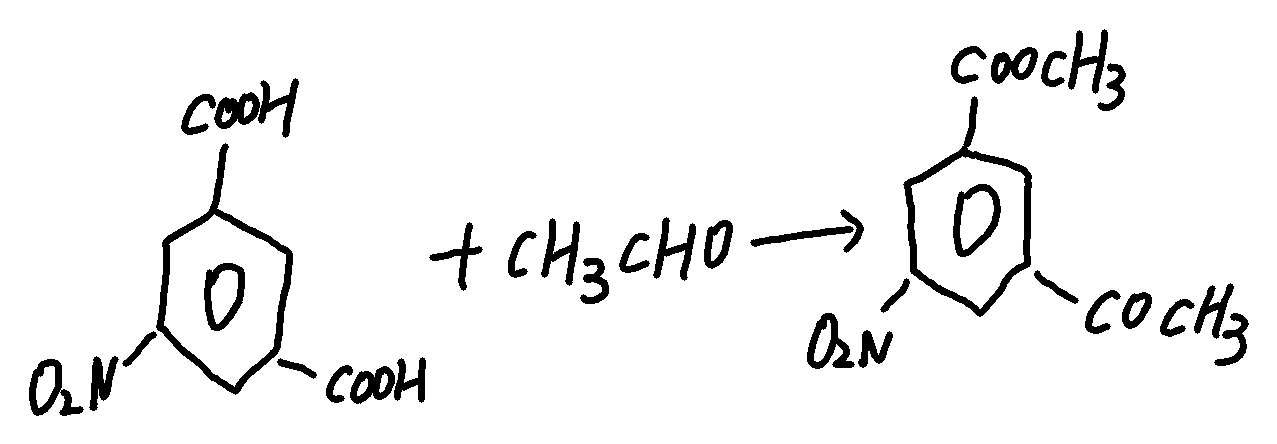 COOH
O2N
COOH
+ CH3CHO →
COOCH3
O2N
COCH3